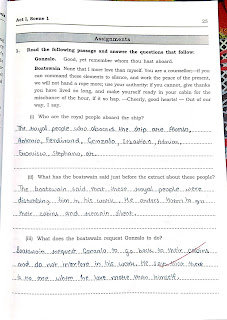 Act I, Scene 1
25
Assignments
1. Read the following passage and answer the questions that follow:
Gonzalo. Good, yet remember whom thou hast aboard.
Boatswain None that I more love than myself. You are a counsellor—if you
can command these elements to silence, and work the peace of the present,
we will not hand a rope more; use your authority: if you cannot, give thanks
you have lived so long, and make yourself ready in your cabin for the
mischance of the hour, if it so hap.—Cheerly, good hearts! — Out of our
way, I say.
(i) Who are the royal people aboard the ship?
The royal people who aboard the ship are Alonso,
Antonio, Ferdinand, Gonzalo, Sebastian, Adrian,
Francisco, Stephano, etc.
(ii) What has the boatswain said just before the extract about these people?
The boatswain said that these royal people were
disturbing him in his work. He orders them to go
their cabins and remain silent.
(iii) What does the boatswain request Gonzalo to do?
Boatswain request Gonzalo to go back to their cabins
and do not interfere in his work. He says that there
is no one whom he love more than himself.